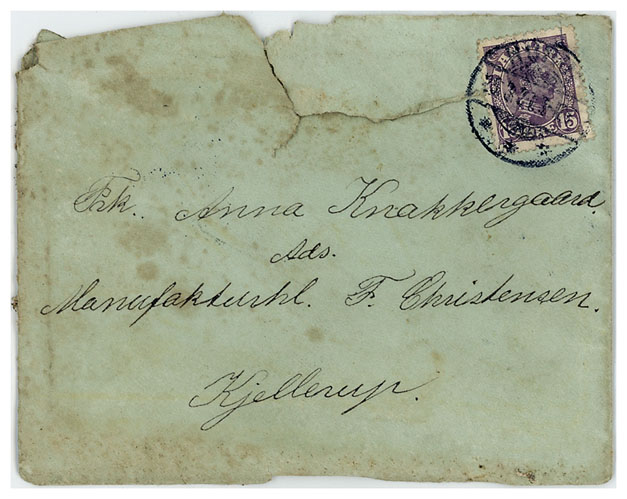 DANMARK
15
Frk. Anna Knakkergaard.
Ads.
Manufakturhl. F. Christensen.
Kjellerup.